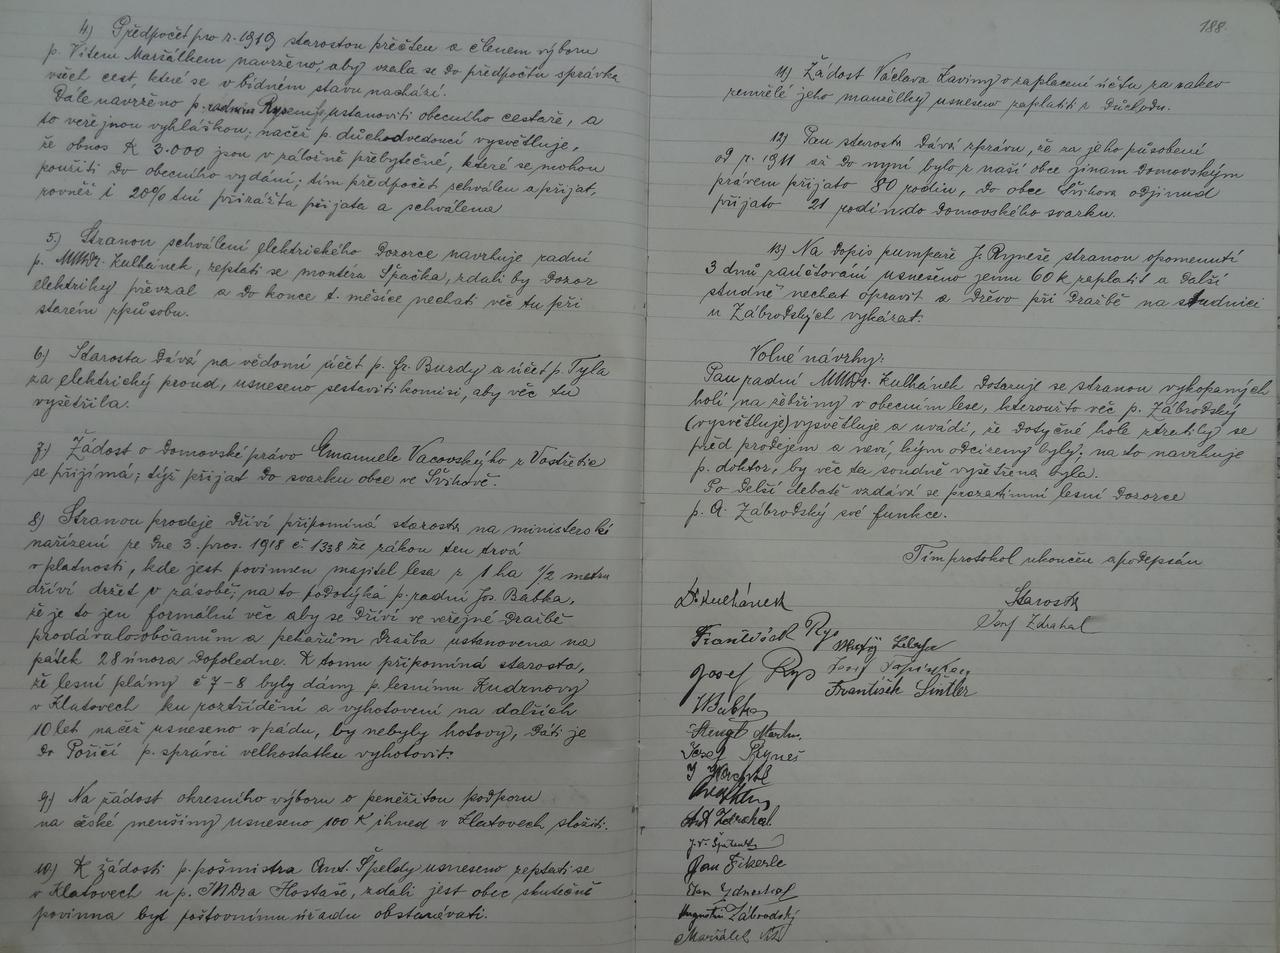 4) Předpočet pro r. 1919 starostou přečten a členem výboru
p. Vítem Maršálkem navrženo, aby vzala se do předpočtu správka
všech cest, které se v bídném stavu nachází.
Dále navrženo p. radním Rysem ustanoviti obecního cestáře, a
to veřejnou vyhláškou; načež p. důchodvedoucí vysvětluje,
že obnos K 3.000 jsou v záložně přebytečné, které se mohou
použíti do obecního vydání; tím předpočet schválen a přijat,
rovněž i 20% tní přirážka přijata a schválena
5) Stranou schválení elektrického dozorce navrhuje radní
p. MUDr. Kulhánek, zeptati se montéra Špačka, zdali by dozor
elektriky převzal a do konce t. měsíce nechati věc tu při
starém způsobu.
6) Starosta dává na vědomí účet p. Fr. Burdy a účet p. Tyla
za elektrický proud, usneseno sestaviti komisi, aby věc tu
vyšetřila.
7) Žádost o domovské právo Emanuele Vacovského z Vostřetic
se přijímá; týž přijat do svazku obce ve Švihově.
8) Stranou prodeje dříví připomíná starosta na ministerské
nařízení ze dne 3. pros. 1918 č. 1338 že zákon ten trvá
v platnosti, kde jest povinnen majitel lesa z 1 ha 1/2 metru
dříví držet v zásobě; na to podotýká p. radní Jos. Babka,
že je to jen formální věc aby se dříví ve veřejné dražbě
prodávalo občanům a pekařům dražba ustanovena na
pátek 28 února dopoledne. K tomu připomíná starosta,
že lesní plány č 7-8 byly dány p. lesnímu Kudrnovy
v Klatovech ku roztřídění a vyhotovení na dalších
10 let načež usneseno v pádu, by nebyly hotovy, dáti je
do Poříčí p. správci velkostatku vyhotovit.
9) Na žádost okresního výboru o peněžitou podporu
na české menšiny usneseno 100 K ihned v Klatovech složiti.
10) K žádosti p. pošmistra Ant. Špeldy usneseno zeptati se
v Klatovech u p. JUDra Hostaše, zdali jest obec skutečně
povinna byt poštovnímu úřadu obstarávati.
188.
11) Žádost Václava Laviny o zaplacení účtu za rakev
zemřelé jeho manželky usneseno zaplatiti z důchodu.
12) Pan starosta dává zprávu, že za jeho působení
od r. 1911 až do nyní bylo z naší obce jinam domovským
právem přijato 80 rodin, do obce Švihova odjinud
přijato 21 rodin do domovského svazku.
13) Na dopis pumpaře J. Ryneše stranou opomenutí
3 dnů zaúčtování usneseno jemu 60 k zaplatit a další
studně nechat opravit a dřevo při dražbě na studnici
u Zábrodských vykázat.
Volné návrhy:
Pan radní MUDr. Kulhánek dotazuje se stranou vykopaných
holí na žebřiny v obecním lese, kteroužto věc p. Zábrodský
(vysvětluje) vysvětluje a uvádí, že dotyčné hole ztratily se
před prodejem a neví, kým odcizeny byly; na to navrhuje
p. doktor, by věc ta soudně vyšetřena byla.
Po delší debatě vzdává se prozatimní lesní dozorce
p. A. Zábrodský své funkce.
Tím protokol ukončen a podepsán
Dr Kulhánek
Starosta
Josef Zdrahal
František Rys
Josef Rys
František Šintler
Babka
Stengl Martin
Josef Ryneš
Ant Zdrahal
Jan Fikerle
Jan
Augustin Zábrodský
Maršálek Vít